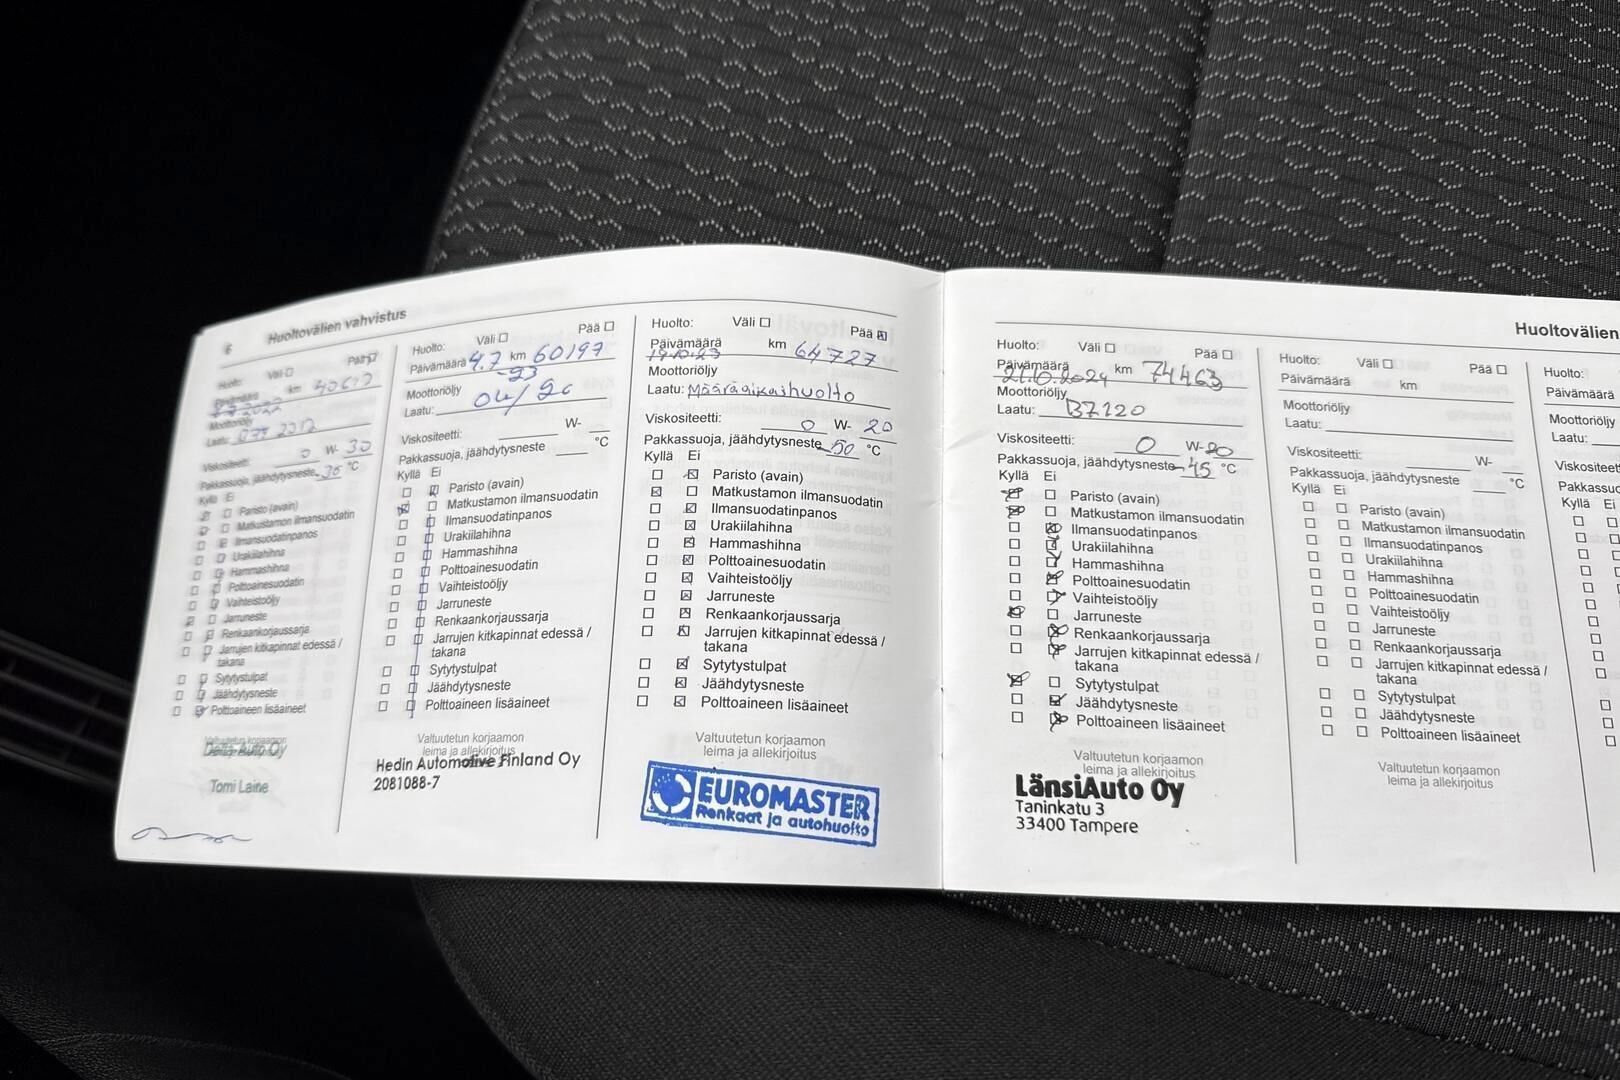 6 Huoltovälien vahvistus
Huolto: Väli Pää
Päivämäärä km
Moottoriöljy
Laatu:
Viskositeetti: 0 W- 30
Pakkassuoja, jäähdytysneste °C
Kyllä Ei
Paristo (avain)
Matkustamon ilmansuodatin
Ilmansuodatinpanos
Urakiilahihna
Hammashihna
Polttoainesuodatin
Vaihteistoöljy
Jarruneste
Renkaankorjaussarja
Jarrujen kitkapinnat edessä /
takana
Sytytystulpat
Jäähdytysneste
Polttoaineen lisäaineet
Valtuutetun korjaamon
Delta Auto Oy
Tomi Laine
Huolto: Väli Pää
Päivämäärä 4.7 km 60197
-23
Moottoriöljy
Laatu:
Viskositeetti: W-
Pakkassuoja, jäähdytysneste °C
Kyllä Ei
Paristo (avain)
Matkustamon ilmansuodatin
Ilmansuodatinpanos
Urakiilahihna
Hammashihna
Polttoainesuodatin
Vaihteistoöljy
Jarruneste
Renkaankorjaussarja
Jarrujen kitkapinnat edessä /
takana
Sytytystulpat
Jäähdytysneste
Polttoaineen lisäaineet
Valtuutetun korjaamon
leima ja allekirjoitus
Hedin Automotive Finland Oy
2081088-7
Huolto: Väli Pää
Päivämäärä km 64727
19.10.23
Moottoriöljy
Laatu: Määräaikaishuolto
Viskositeetti: 0 W- 20
Pakkassuoja, jäähdytysneste -50 °C
Kyllä Ei
Paristo (avain)
Matkustamon ilmansuodatin
Ilmansuodatinpanos
Urakiilahihna
Hammashihna
Polttoainesuodatin
Vaihteistoöljy
Jarruneste
Renkaankorjaussarja
Jarrujen kitkapinnat edessä /
takana
Sytytystulpat
Jäähdytysneste
Polttoaineen lisäaineet
Valtuutetun korjaamon
leima ja allekirjoitus
EUROMASTER
Renkaat ja autohuolto
Huoltovälien
Huolto: Väli Pää
Päivämäärä km 74463
21.10.2024
Moottoriöljy
Laatu: B7120
Viskositeetti: 0 W-20
Pakkassuoja, jäähdytysneste -45 °C
Kyllä Ei
Paristo (avain)
Matkustamon ilmansuodatin
Ilmansuodatinpanos
Urakiilahihna
Hammashihna
Polttoainesuodatin
Vaihteistoöljy
Jarruneste
Renkaankorjaussarja
Jarrujen kitkapinnat edessä /
takana
Sytytystulpat
Jäähdytysneste
Polttoaineen lisäaineet
Valtuutetun korjaamon
leima ja allekirjoitus
LänsiAuto Oy
Taninkatu 3
33400 Tampere
Huolto: Väli Pää
Päivämäärä km
Moottoriöljy
Laatu:
Viskositeetti: W-
Pakkassuoja, jäähdytysneste °C
Kyllä Ei
Paristo (avain)
Matkustamon ilmansuodatin
Ilmansuodatinpanos
Urakiilahihna
Hammashihna
Polttoainesuodatin
Vaihteistoöljy
Jarruneste
Renkaankorjaussarja
Jarrujen kitkapinnat edessä /
takana
Sytytystulpat
Jäähdytysneste
Polttoaineen lisäaineet
Valtuutetun korjaamon
leima ja allekirjoitus
Huolto:
Päivämäärä
Moottoriöljy
Laatu:
Viskositeet
Pakkassuo
Kyllä Ei